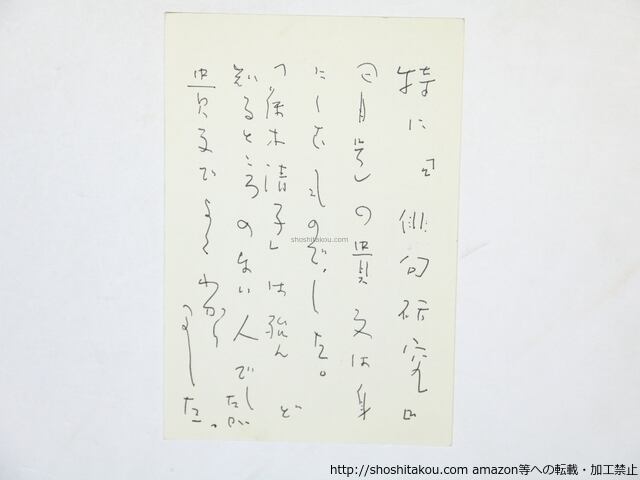 特に『俳句研究』
月号」の貴文は身
にしみるものでした。
「藤木清子」は殆んど
知るところのない人でしたが
貴文でよくわかりました。
shoshitakou.com
http://shoshitakou.com amazon等への転載・加工禁止